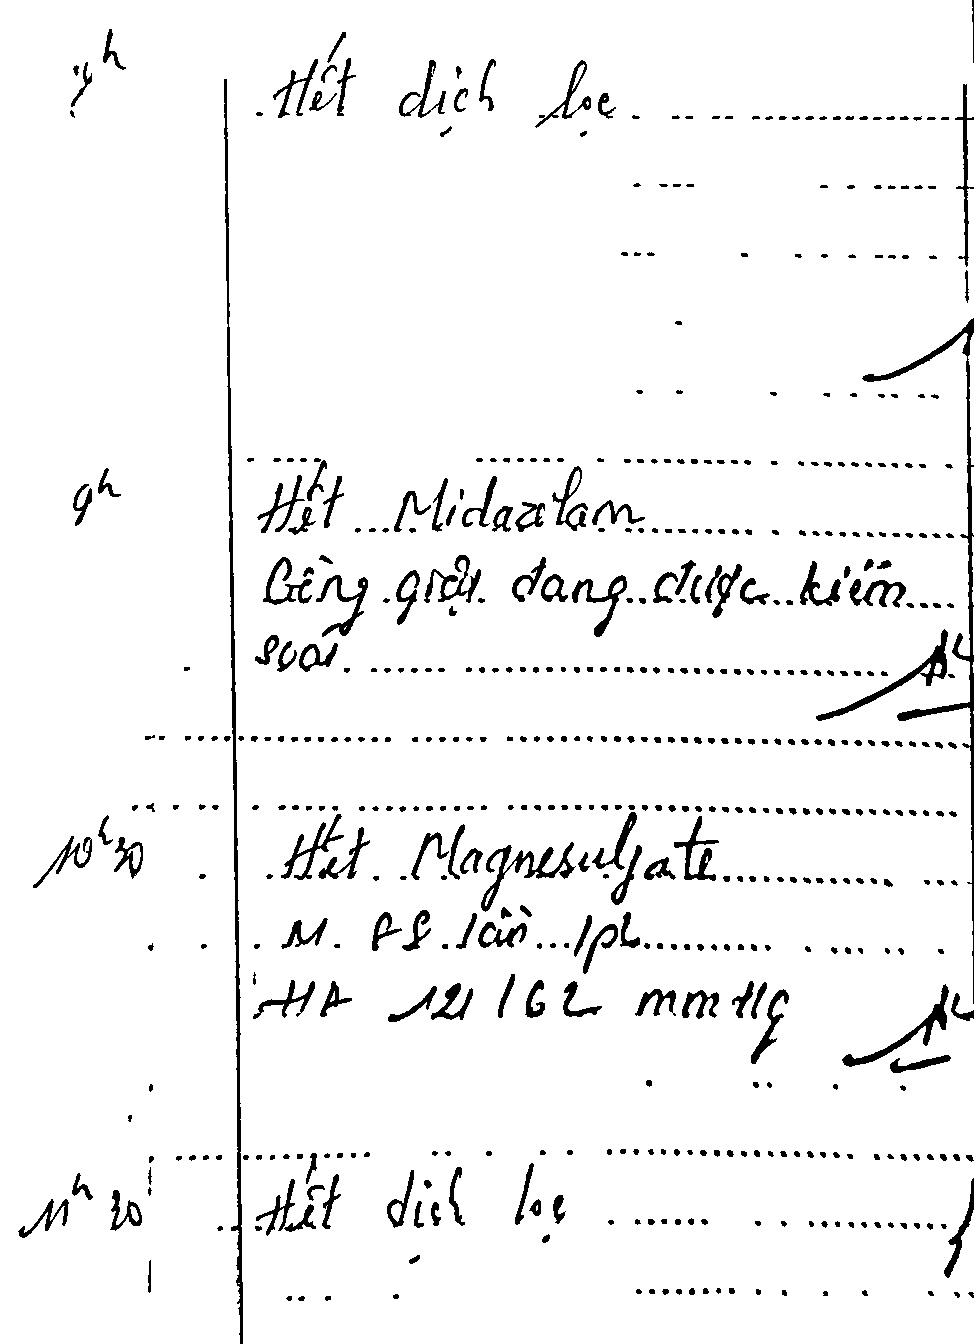 Hết dịch lọc
9h
Hết Midazolam
Gồng giật đang được kiểm
soát
10h30
Hết Magnesulfate
M 88 lần/ph
HA 121/62 mmHg
11h30
Hết dịch lọc